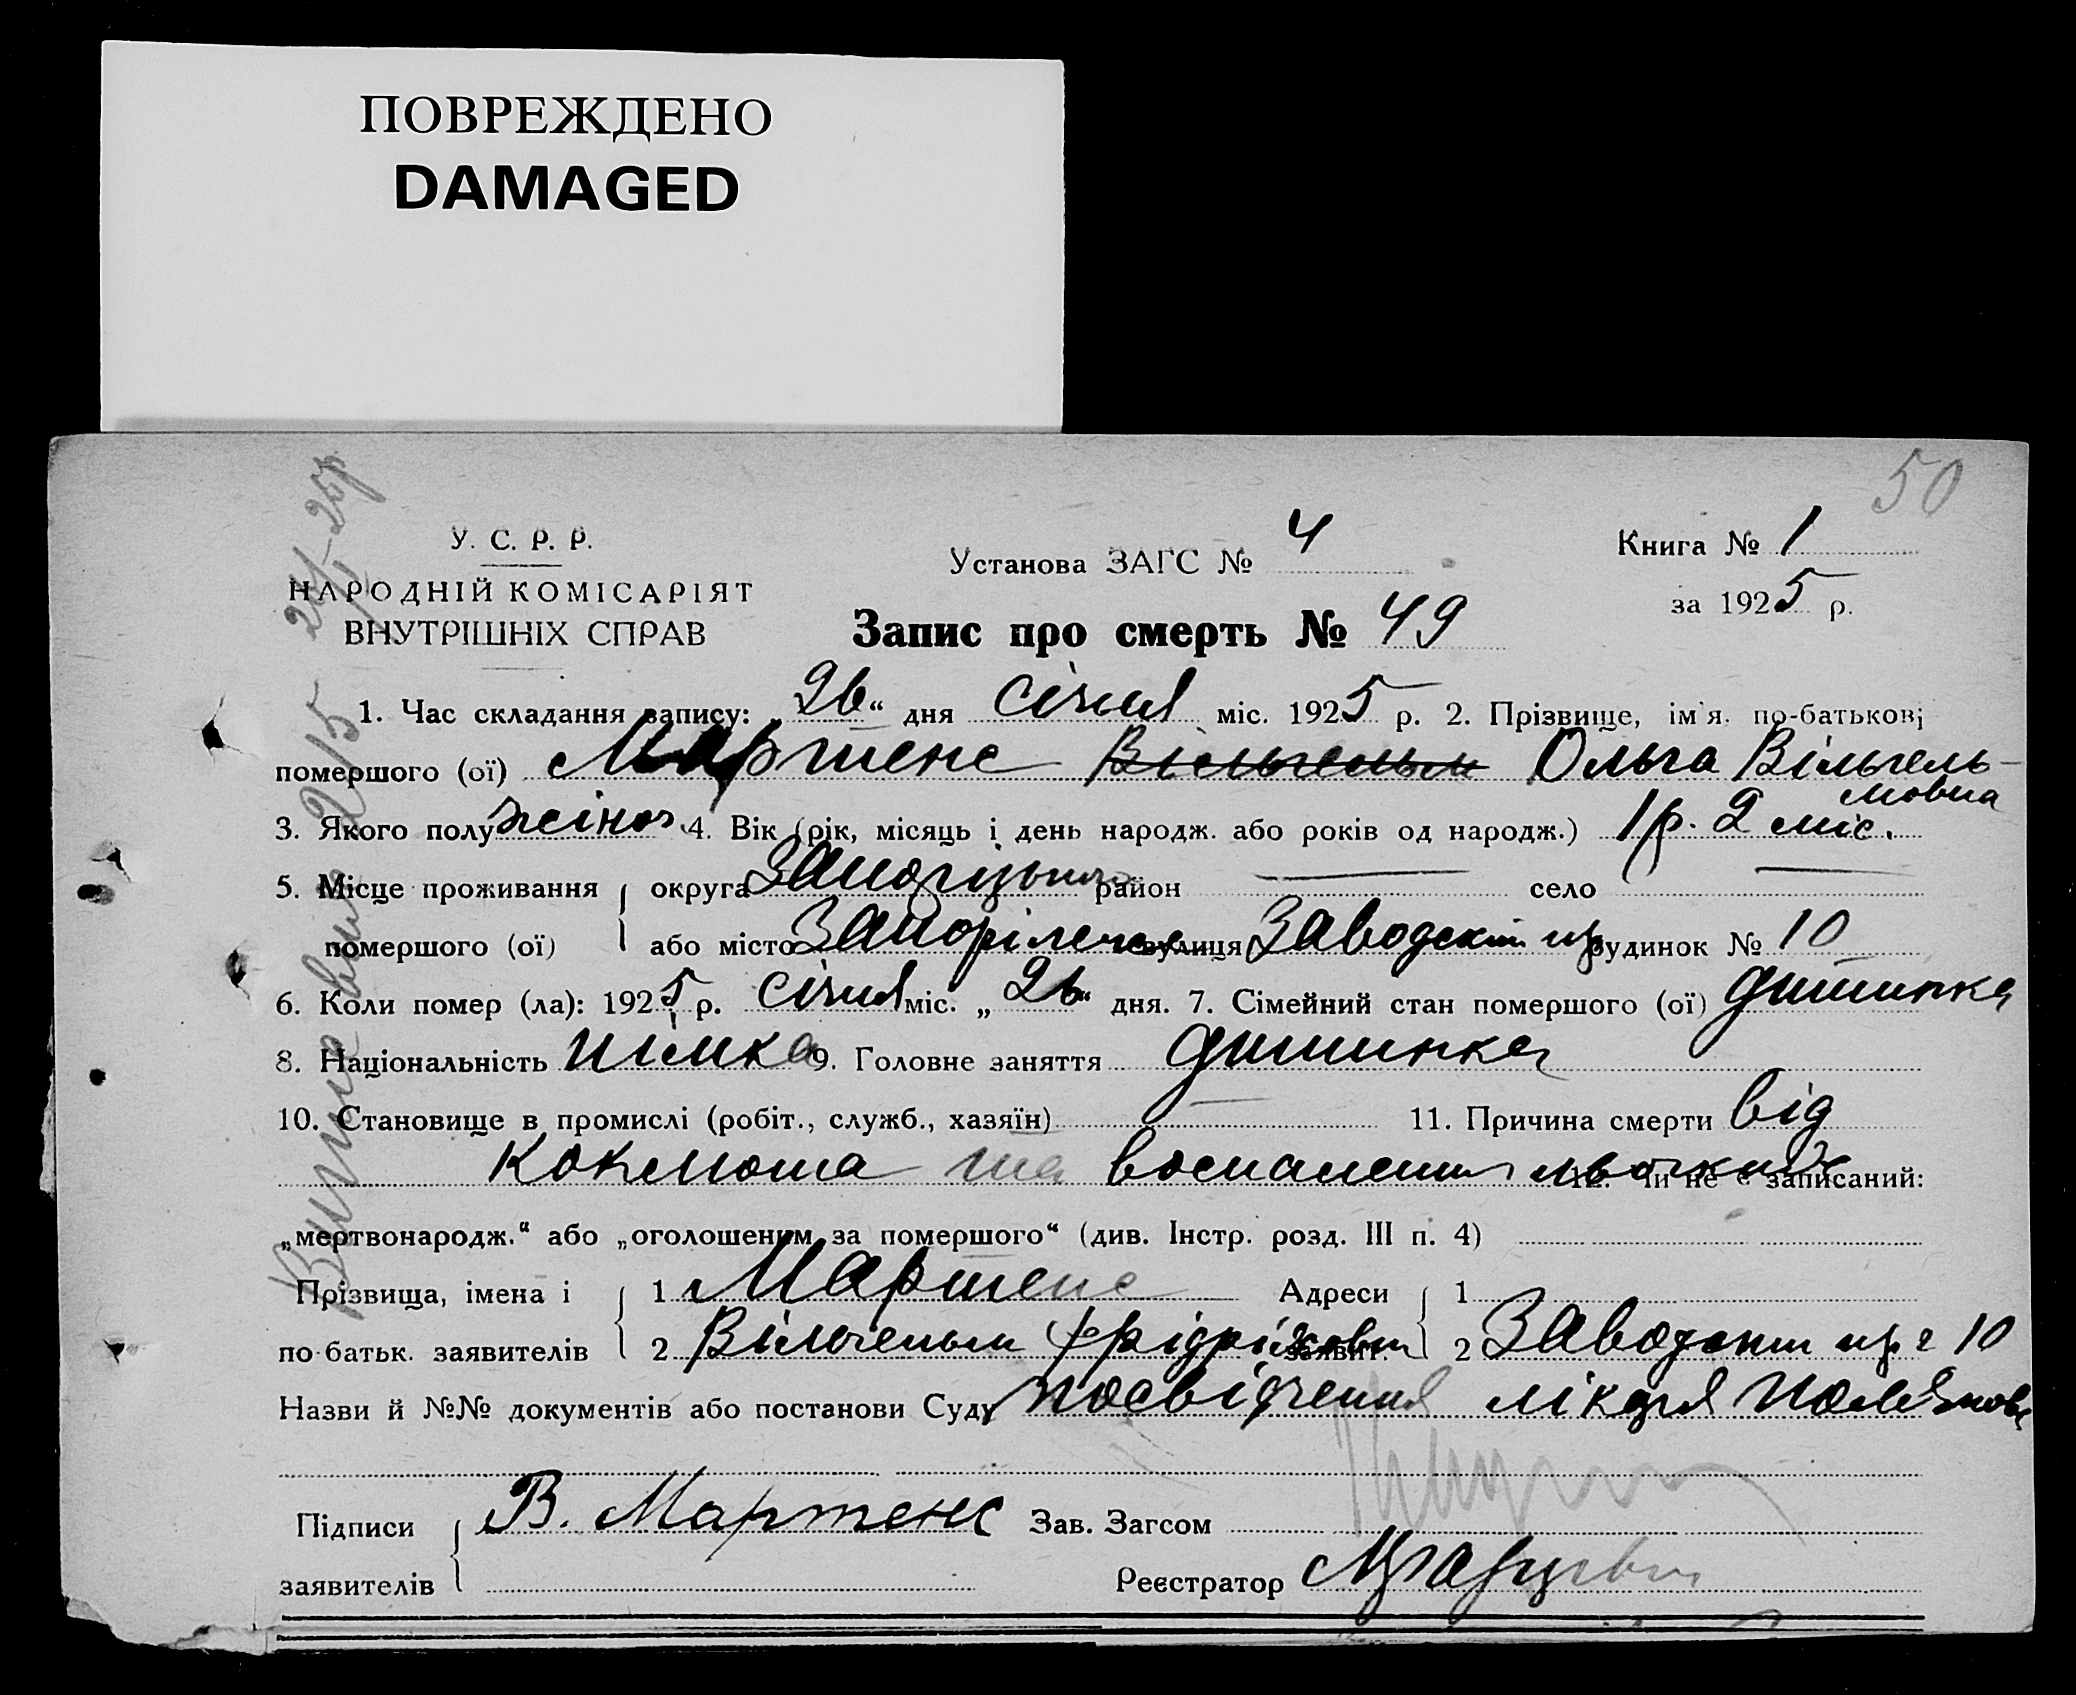 ПОВРЕЖДЕНО
DAMAGED
50
У. С. Р. Р.
НАРОДНІЙ КОМІСАРІЯТ
ВНУТРІШНІХ СПРАВ
Установа ЗАГС № 4
Книга № 1
за 1925 р.
Запис про смерть № 49
1. Час складання запису: „26“ дня січня міс. 1925 р. 2. Прізвище, ім'я, по-батькові
помершого (ої) Мартенс Вільгельм Ольга Вільгель-
мовна
3. Якого полу жіноч. 4. Вік (рік, місяць і день народж. або років од народж.) 1 р. 2 міс.
5. Місце проживання округа район — село —
помершого (ої) або місто Запоріжжя вулиця Заводский пр будинок № 10
6. Коли помер (ла): 1925 р. січня міс. „26“ дня. 7. Сімейний стан помершого (ої) дитинка
8. Національність німка 9. Головне заняття дитинка
10. Становище в промислі (робіт., служб., хазяїн) — 11. Причина смерти від
коклюша та воспаления льогких 12. Чи не є записаний:
„мертвонародж.“ або „оголошеним за помершого“ (див. Інстр. розд. III п. 4)
Прізвища, імена і 1 Мартенс Адреси 1
по батьк. заявителів 2 Вільгельм Фрідріхович заявит. 2 Заводский пр 10
Назви й №№ документів або постанови Суду посвідчення лікаря
Підписи В. Мартенс Зав. Загсом
заявителів Реєстратор